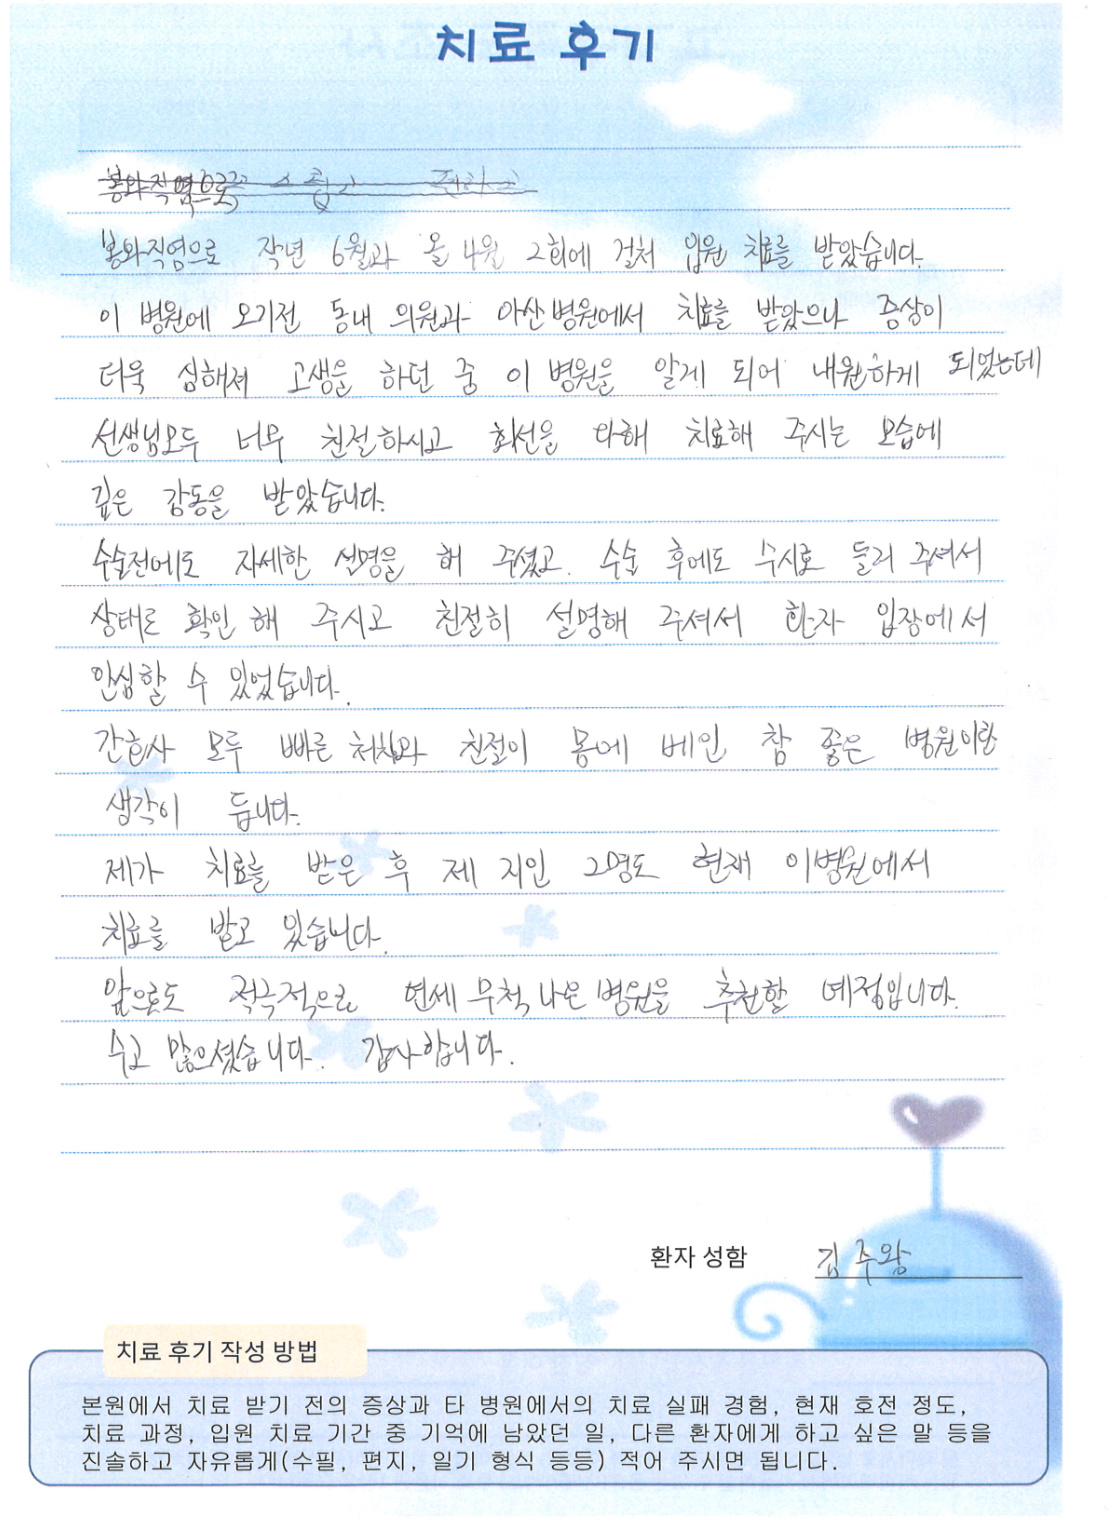 치료 후기
봉와직염으로
봉와직염으로 작년 6월과 올 4월 2회에 걸쳐 입원 치료를 받았습니다.
이 병원에 오기전 동내 의원과 아산병원에서 치료를 받았으나 증상이
더욱 심해져 고생을 하던 중 이 병원을 알게 되어 내원하게 되었는데
선생님모두 너무 친절하시고 최선을 다해 치료해 주시는 모습에
깊은 감동을 받았습니다.
수술전에도 자세한 설명을 해 주셨고. 수술 후에도 수시로 들러 주셔서
상태로 확인 해 주시고 친절히 설명해 주셔서 환자 입장에서
안심할 수 있었습니다.
간호사 모두 빠른 처치와 친절이 몸에 베인 참 좋은 병원이란
생각이 듭니다.
제가 치료를 받은 후 제 지인 2명도 현재 이병원에서
치료를 받고 있습니다.
앞으로도 적극적으로 연세 무척 나은 병원을 추천할 예정입니다.
수고 많으셨습니다. 감사합니다.
환자 성함 김주왕
치료 후기 작성 방법
본원에서 치료 받기 전의 증상과 타 병원에서의 치료 실패 경험, 현재 호전 정도,
치료 과정, 입원 치료 기간 중 기억에 남았던 일, 다른 환자에게 하고 싶은 말 등을
진솔하고 자유롭게(수필, 편지, 일기 형식 등등) 적어 주시면 됩니다.